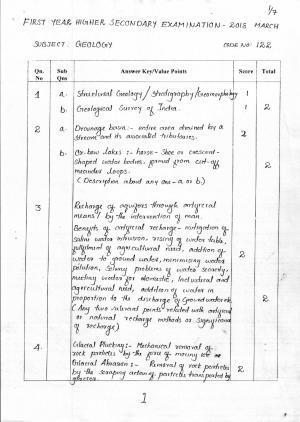 1/7
FIRST YEAR HIGHER SECONDARY EXAMINATION - 2018 MARCH
SUBJECT: GEOLOGY CODE NO: 122
Qn. No Sub Qns Answer Key/Value Points Score Total
1 a. Structural Geology / Stratigraphy / Geomorphology 1
b. Geological Survey of India. 1 2
2 a. Drainage basin:- entire area drained by a
stream and its associated tributaries. 2
b. Ox-bow lakes:- horse-shoe or crescent-
shaped water bodies, formed from cut-off
meander loops.
(Description about any one - a or b) 2
3 Recharge of aquifers through artificial
means / by the intervention of man.
Benefits of artificial recharge - mitigation of
saline water intrusion, rising of water table,
fulfilment of agricultural need, addition of
water to ground water, minimising water
pollution, solving problems of water scarcity,
meeting water for domestic, industrial and
agricultural need, addition of water in
proportion to the discharge of Ground water etc.
(Any two relevant points related with artificial
or natural recharge methods or significance
of recharge) 2 2
4 Glacial Plucking:- Mechanical removal of
rock particles by the force of moving ice
Glacial Abrasion:- Removal of rock particles
by the scraping action of particles transported by
glacier 2
1